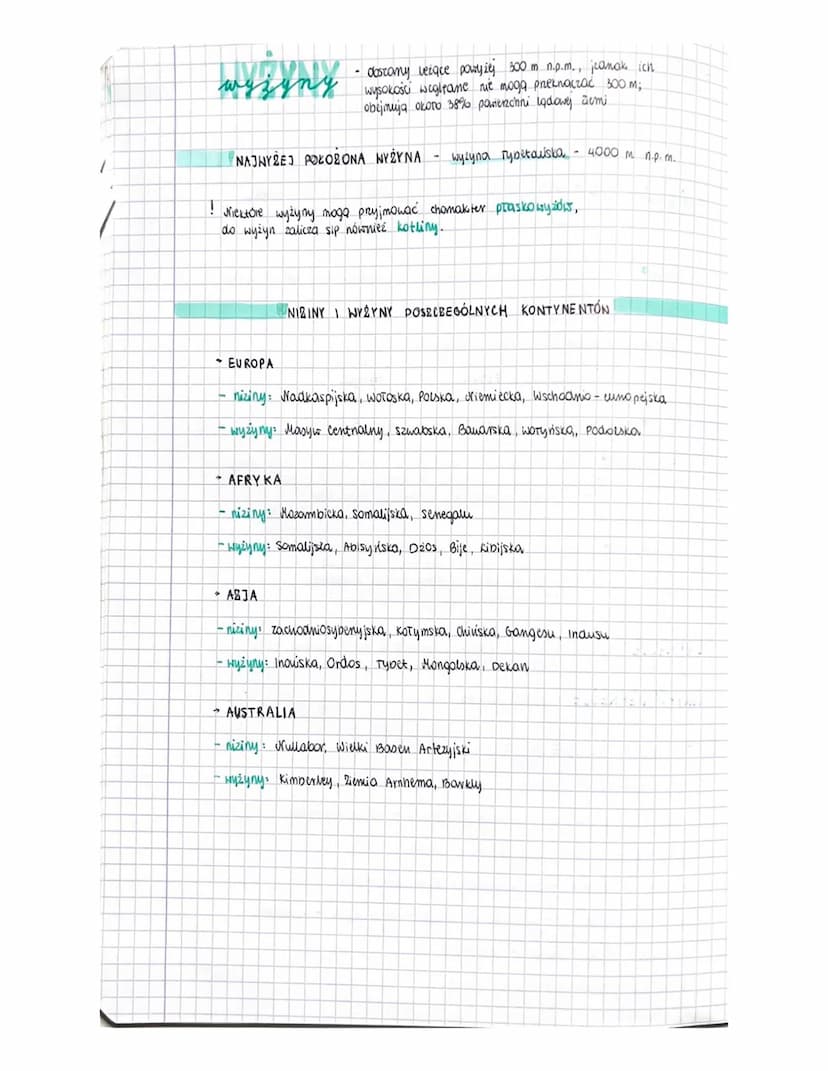 WYŻYNY
wyżyny - obszary leżące powyżej 300 m n.p.m., jednak ich
wysokości względne nie mogą przekraczać 300 m;
obejmują około 38% powierzchni lądowej ziemi
! NAJWYŻEJ POŁOŻONA WYŻYNA - Wyżyna Tybetańska - 4000 m n.p.m.
! Niektóre wyżyny mogą przyjmować charakter płaskowyżów,
do wyżyn zalicza się również kotliny.
NIZINY I WYŻYNY POSZCZEGÓLNYCH KONTYNENTÓW
→ EUROPA
- niziny: Nadkaspijska, Wołoska, Polska, Niemiecka, Wschodnio-europejska
- wyżyny: Masyw Centralny, Szwabska, Bawarska, Wołyńska, Podolska
→ AFRYKA
- niziny: Mozambicka, Somalijska, Senegalu
- wyżyny: Somalijska, Abisyńska, Dżos, Bije, Libijska
→ AZJA
- niziny: Zachodniosyberyjska, Kołymska, Chińska, Gangesu, Indusu
- wyżyny: Irańska, Ordos, Tybet, Mongolska, Dekan
→ AUSTRALIA
- niziny: Nullabor, Wielki Basen Artezyjski
- wyżyny: Kimberley, Ziemia Arnhema, Barkly